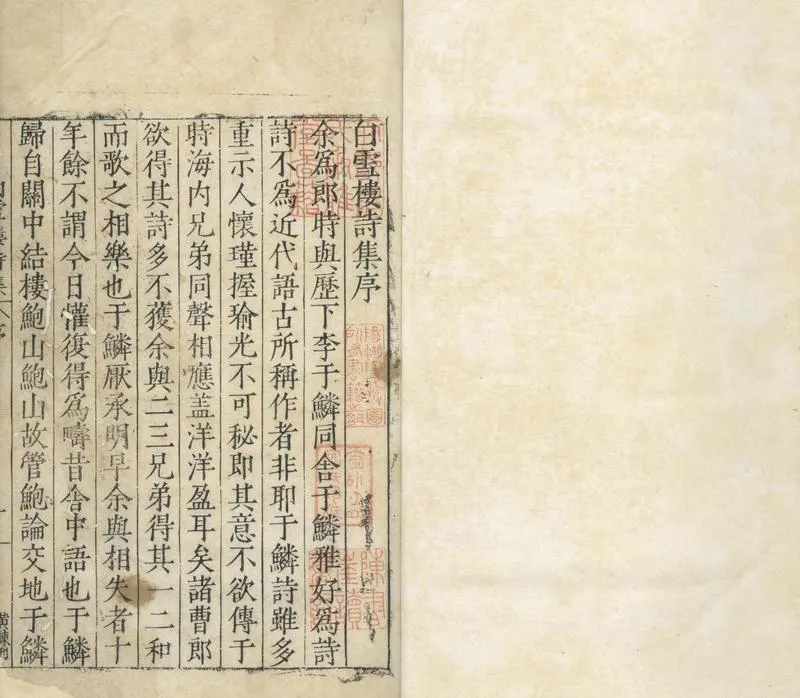 白雪樓詩集序
余爲郎時與歷下李于鱗同舍于鱗雅好爲詩
詩不爲近代語古所稱作者非耶于鱗詩雖多
重示人懷瑾握瑜光不可秘即其意不欲傳于
時海内兄弟同聲相應盖洋洋盈耳矣諸曹郎
欲得其詩多不獲余與二三兄弟得其一二和
而歌之相樂也于鱗厭承明早余與相失者十
年餘不謂今日懽復得爲疇昔舍中語也于鱗
歸自關中結樓鮑山鮑山故管鮑論交地于鱗